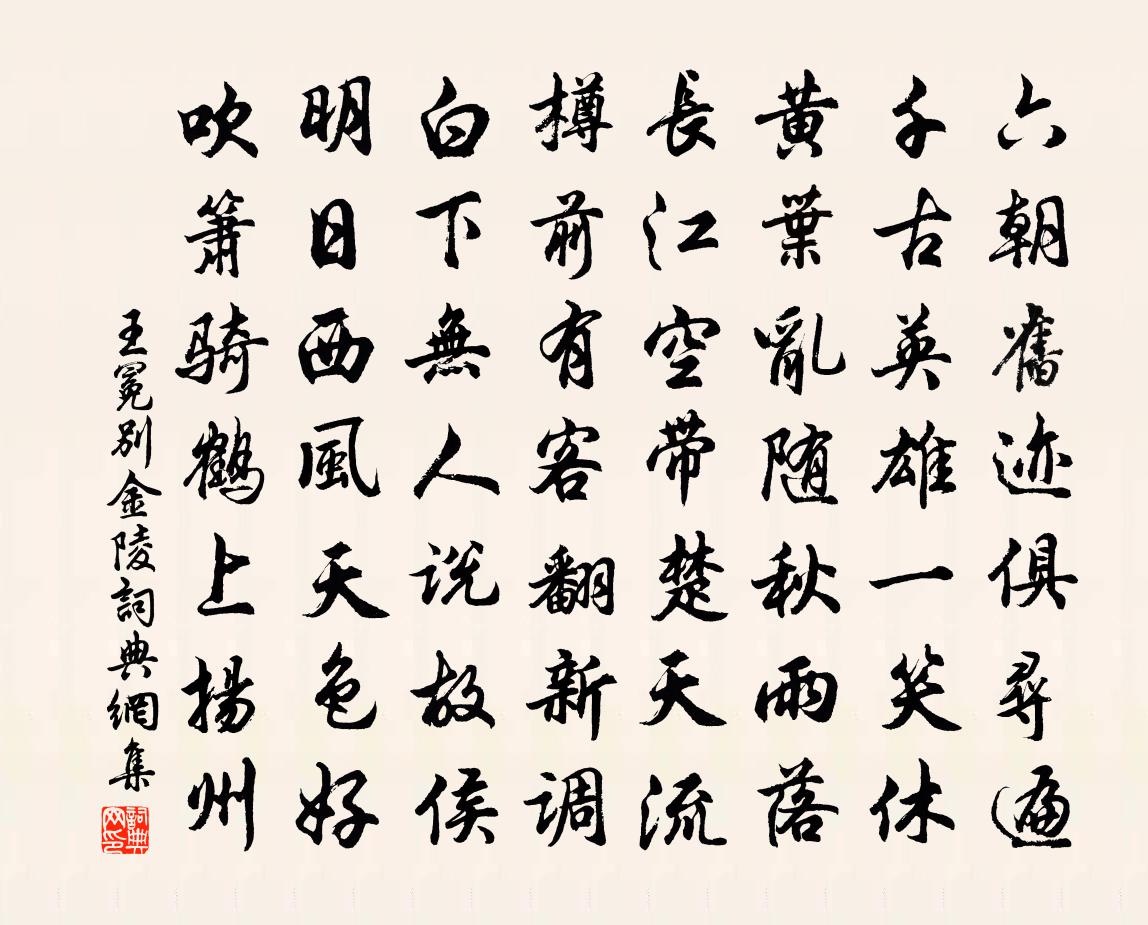 六朝舊迹俱尋遍
千古英雄一笑休
黄葉亂随秋雨落
長江空帶楚天流
樽前有客翻新调
白下無人说故侯
明日西風天色好
吹簫騎鶴上揚州
王冕别金陵詞典網集
詞典网印